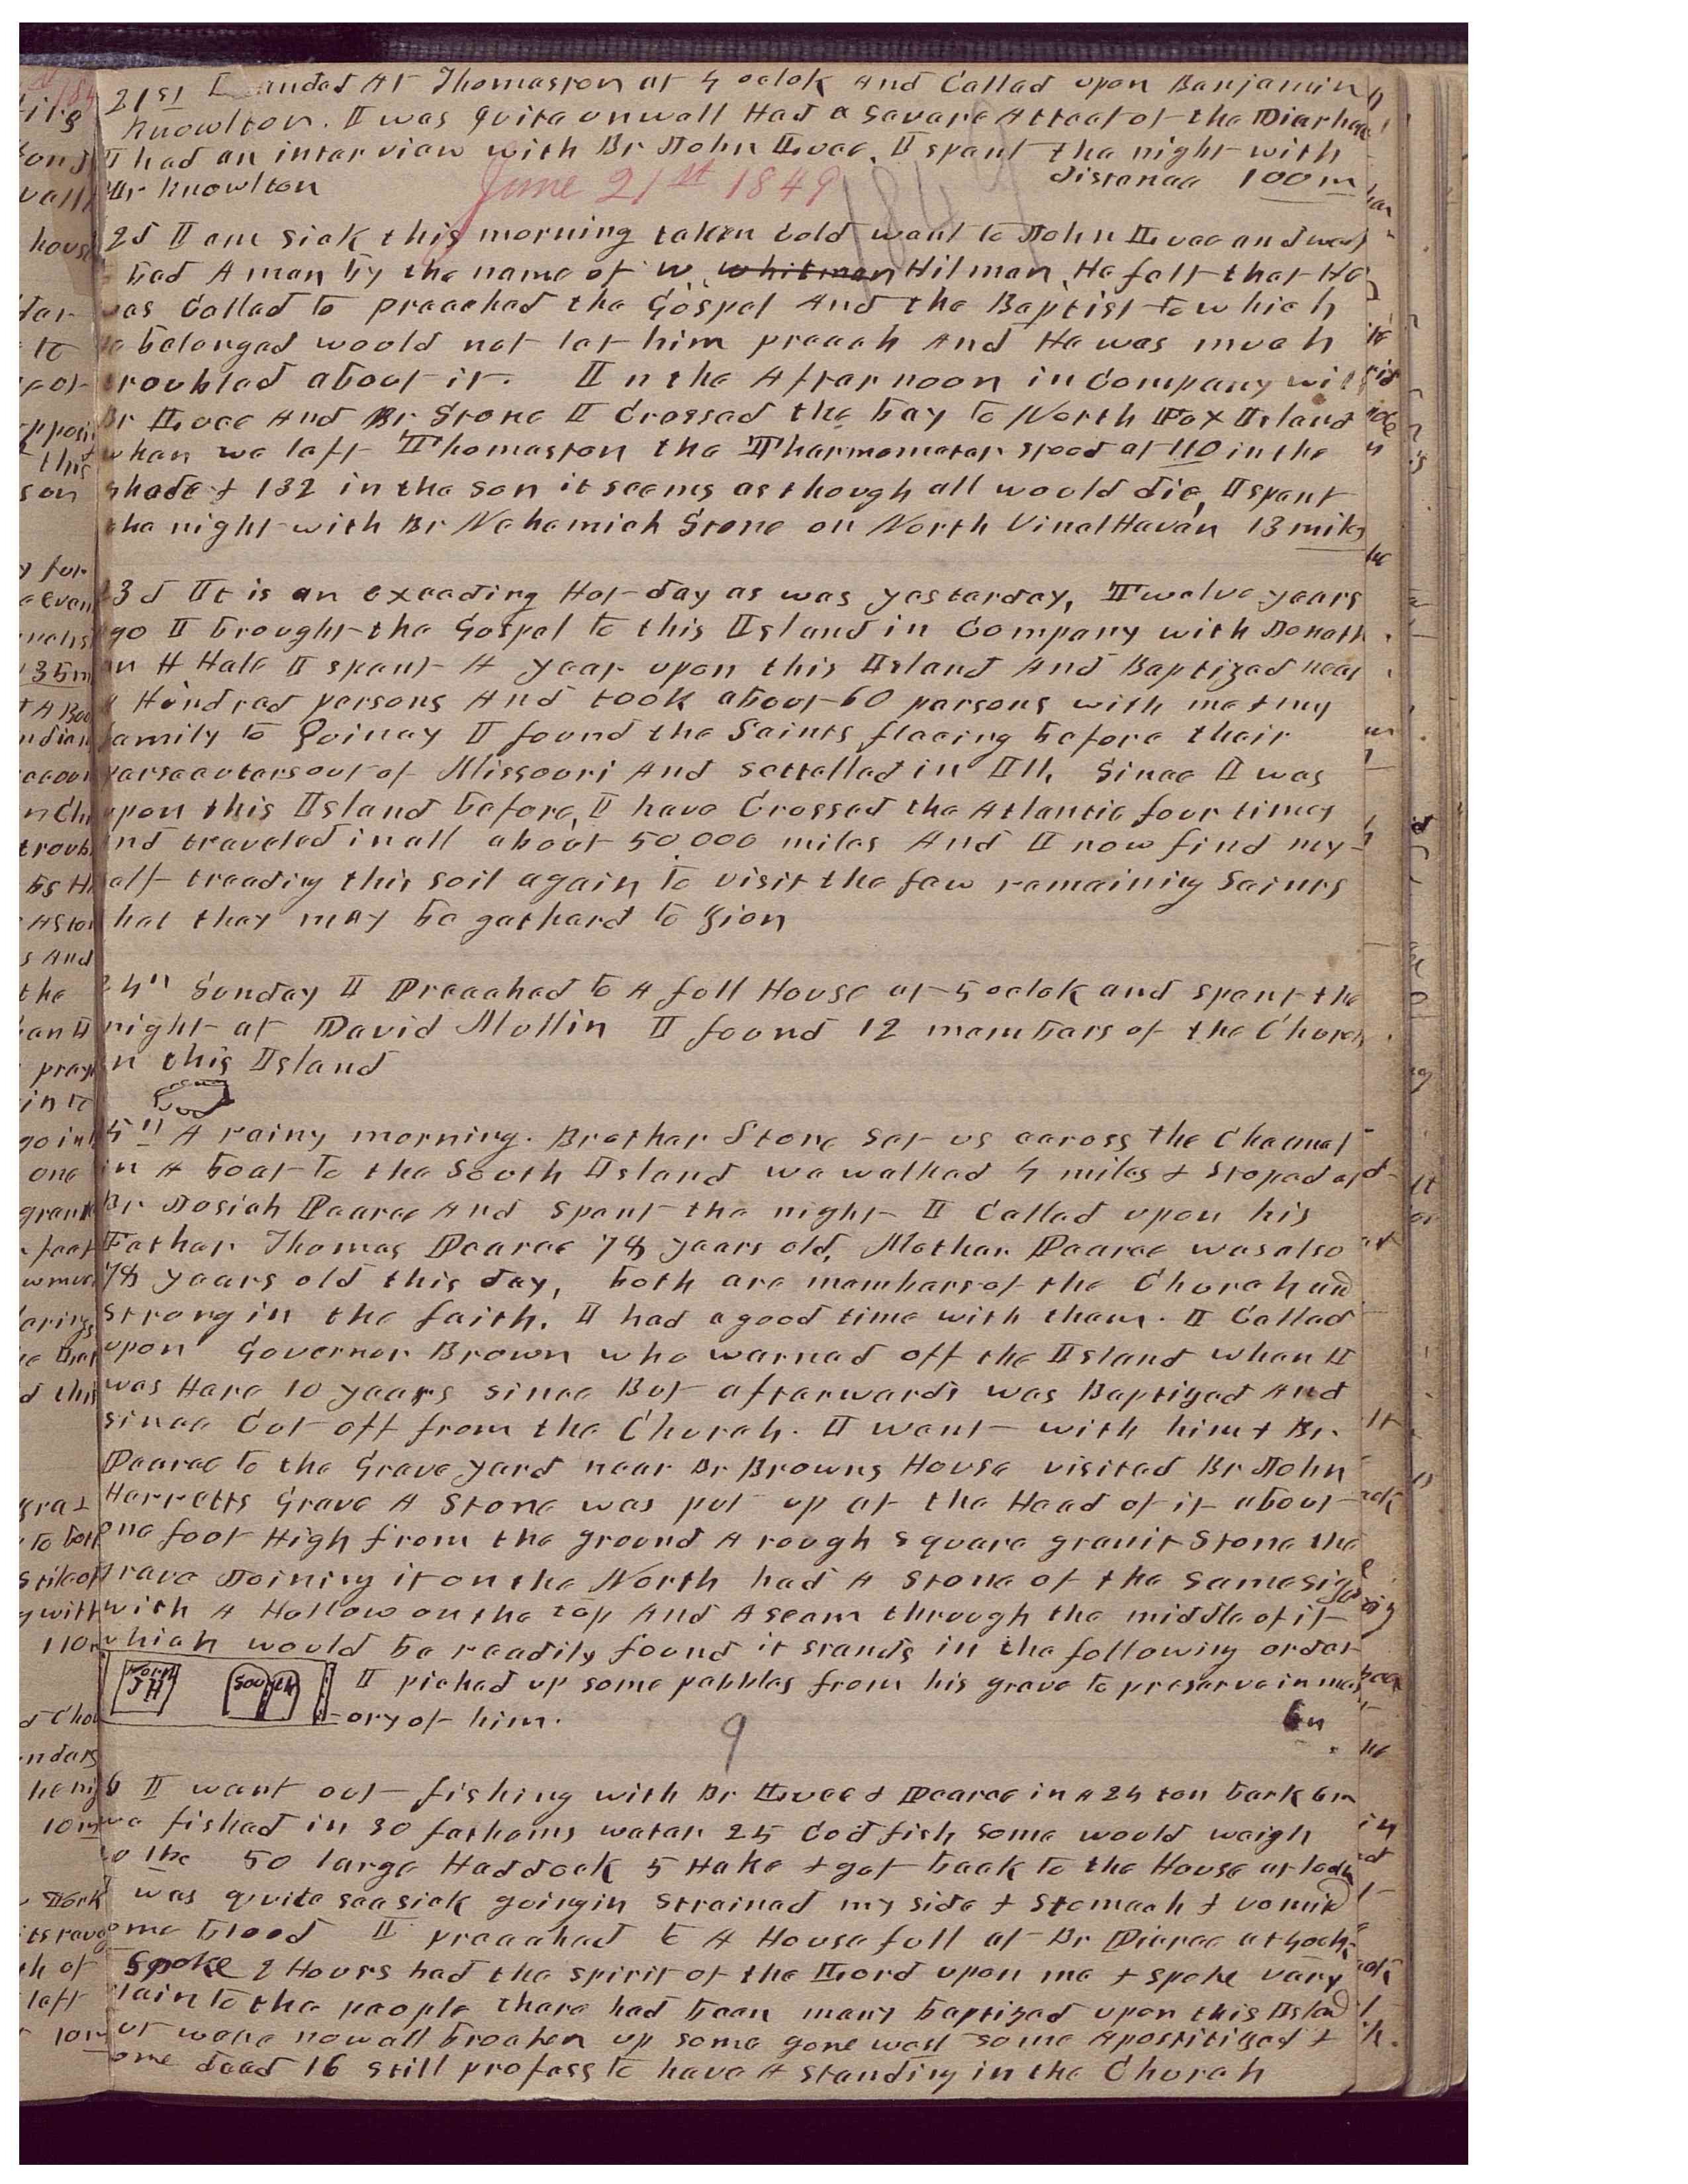 21st I Landed At Thomaston at 4 oclok And Called upon Benjamin
Knowlton. I was quite unwell Had a Severe Attact of the Diarhea
I had an interview with Br John Luce. I spent the night with
Mr Knowlton distance 100 m
June 21st 1849
1849
2d I am sick this morning taken cold went to John Luce and
had A man by the name of W. Whitman Hilman He felt that He
was Called to preached the Gospel And the Baptist to which
he belonged would not let him preach And He was much
troubled about it. In the Afternoon in Company with
Br Luce And Br Stone I Crossed the bay to North Fox Island
when we left Thomaston the Tharmometer stood at 110 in the
shade & 132 in the son it seems as though all would die, I spent
the night with Br Nehemiah Stone on North Vinal Haven 13 miles
23d It is an exceeding Hot day as was yesterday, Twelve years
ago I brought the Gospel to this Island in Company with Jonath
an H Hale I spent A year upon this Island And Baptized near
a Hundred persons And took about 60 persons with me & my
family to Quincy I found the Saints fleeing before their
persecutors out of Missouri And settelled in Ill, Since I was
upon this Island before, I have Crossed the Atlantic four times
And traveled in all about 50.000 miles And I now find my-
self treading this soil again to visit the few remaining Saints
that they may be gatherd to Zion
24th Sunday I Preached to A full House at 5 oclok and spent the
night at David Mullin I found 12 members of the Church
on this Island
5th A rainy morning. Brother Stone set us across the Channel
in A boat to the South Island we walked 4 miles & Stoped at
Br Josiah Pearce And Spent the night I Called upon his
Father Thomas Pearce 78 years old, Mother Pearce was also
78 years old this day, both are members of the Church and
strong in the faith. I had a good time with them. I Called
upon Governor Brown who warned off the Island when I
was Here 10 years since But afterwards was Baptized And
since Cut off from the Church. I went with him & Br.
Pearce to the Grave yard near Br Browns House visited Br John
Herretts Grave A Stone was put up at the Head of it about
one foot High from the ground A rough square granit Stone the
grave Joining it on the North had A stone of the same size
with A Hollow on the top And A seam through the middle of it
which would be readily found it stands in the following order
North JH South I picked up some pebbles from his grave to preserve in mem
-ory of him. 6 m
9
6 I went out fishing with Br Luce & Pearce in A 24 ton bark 6 m
we fished in 30 fathoms water 25 Codfish some would weigh
50 large Haddock 5 Hake & got back to the House at
I was quite seasick going in strained my side & Stomach & vomitd
some blood I preached to A House full at Br Pierce at
Spoke 2 Hours had the spirit of the Lord upon me & spoke very
plain to the people there had been many baptized upon this Island
but were now all broaken up some gone west some Apostitized &
some dead 16 still profess to have A standing in the Church